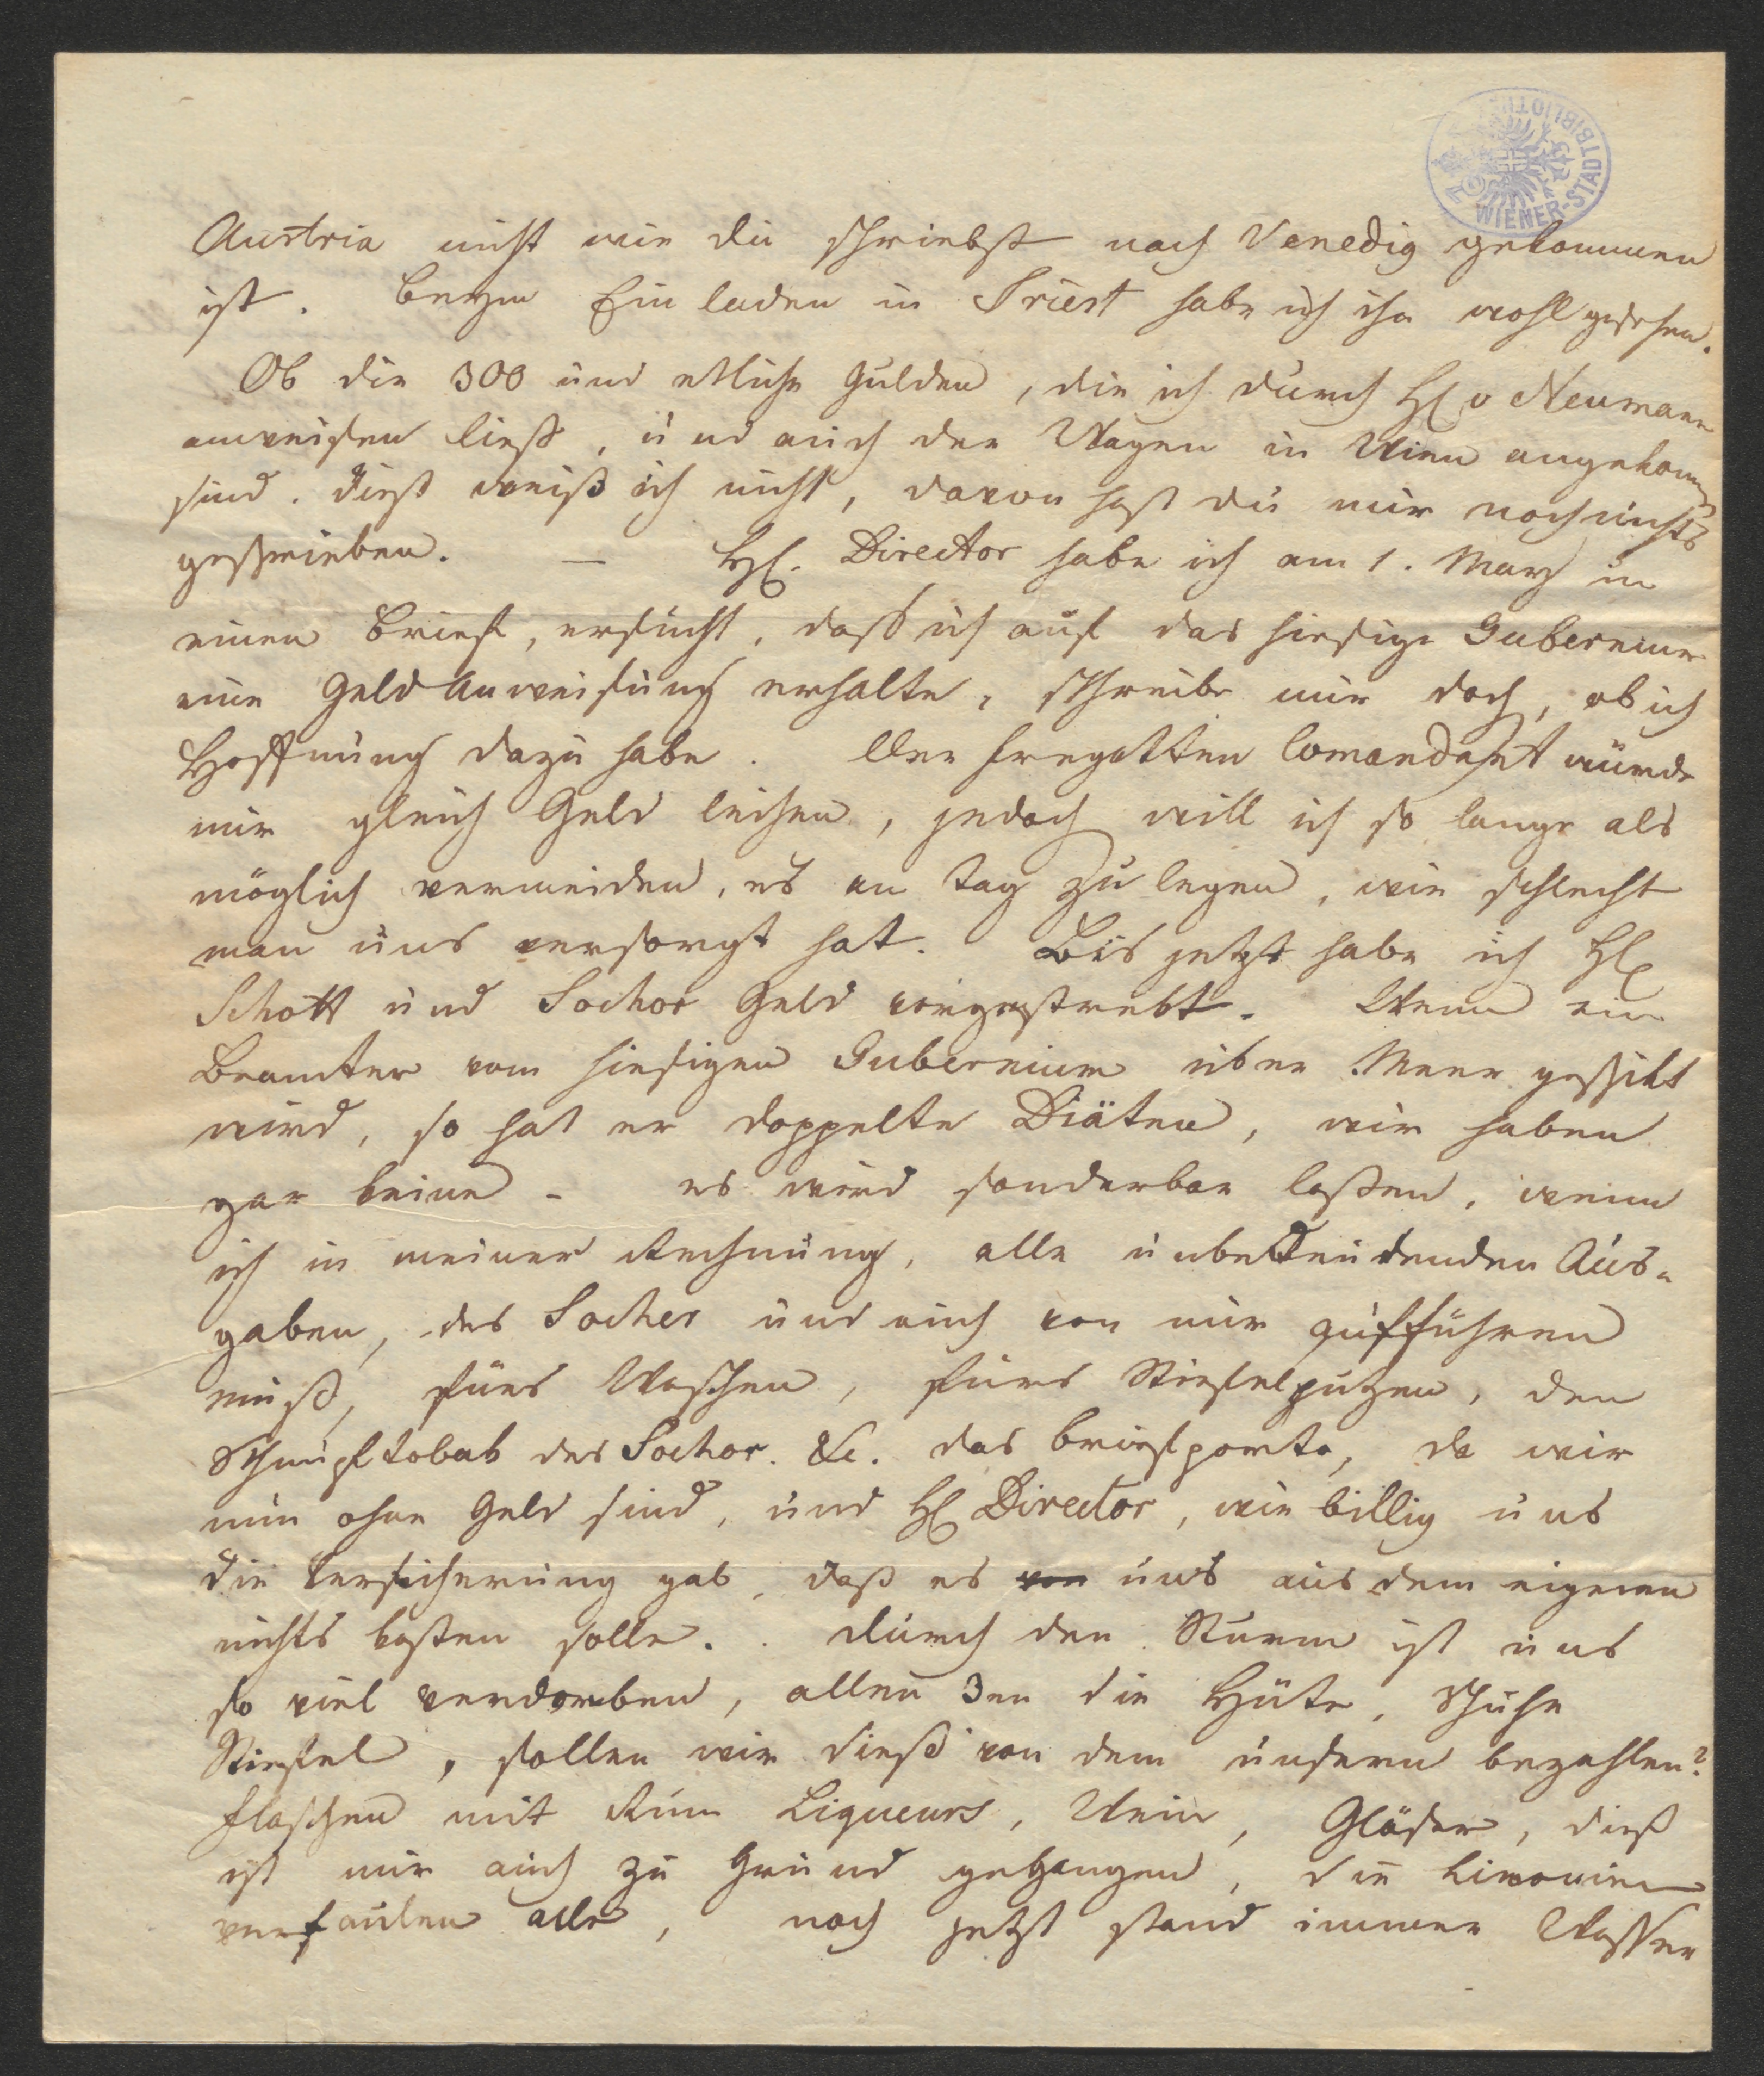 WIENER-STADTBIBLIOTHEK
Austria nicht wie du schriebst nach Venedig gekommen
ist. Beym Einladen in Triest habe ich ihn wohl gesehen.
Ob die 300 und etliche Gulden, die ich durch H v Neumann
anweisen ließ, und auch der Wagen in Wien angekommen
sind. dieß weiß ich nicht, davon hast du mir noch nichts
geschrieben. — H. Director habe ich am 1. März in
einen Brief, ersucht, daß ich auf das hiesige Gubernium
eine Geld Anweisung erhalte, schreibe mir doch, ob ich
Hoffnung dazu habe. Der Fregatten Comandant würde
mir gleich Geld leihen, jedoch will ich so lange als
möglich vermeiden, es an Tag zu legen, wie schlecht
man uns versorgt hat. Bis jetzt habe ich H
Schott und Sochor Geld vorgestrekt. Wenn ein
Beamter vom hiesigen Gubernium über Meer geschikt
wird, so hat er doppelte Diäten, wir haben
gar keine - es wird sonderbar laßen, wenn
ich in meiner Rechnung, alle unbedeutenden Aus-
gaben, des Socher und auch von mir aufführen
muß, fürs Waschen, fürs Stiefelputzen, den
Schnupftobak des Sochor. &c. das Briefporto, da wir
nun ohne Geld sind, und H Director, wie billig uns
die Versicherung gab, daß es von uns aus dem eigenen
nichts kosten solle. Durch den Sturm ist uns
so viel verdorben, allen 3en die Hüte, Schuhe
Stiefel, sollen wir dieß von dem unsern bezahlen?
Flaschen mit Rum Liqueurs, Wein, Gläser, dieß
ist mir auch zu Grund gegangen, die Limonien
verfaulen alle, noch jetzt stand immer Wasser